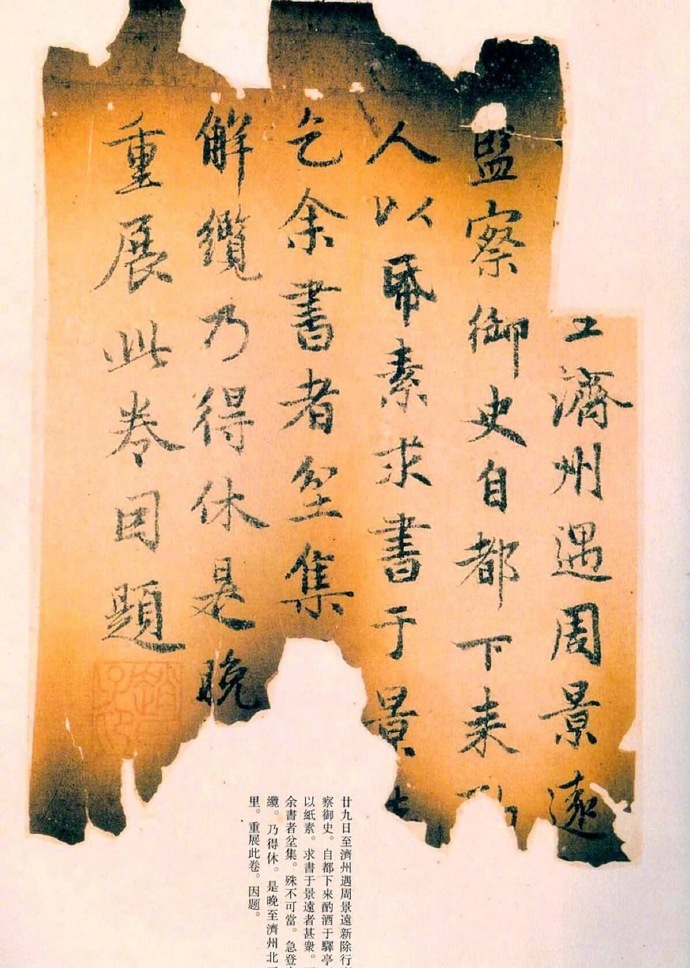 工濟州遇周景遠
監察御史自都下来
人以帋素求書于景
乞余書者坌集
解纜乃得休是晚
重展此卷因題
廿九日至濟州遇周景遠新除行
察御史。自都下來酌酒于驛亭
以紙素。求書于景遠者甚衆。
余書者坌集。殊不可當。急登
纜。乃得休。是晚至濟州北
里。重展此卷。因題。